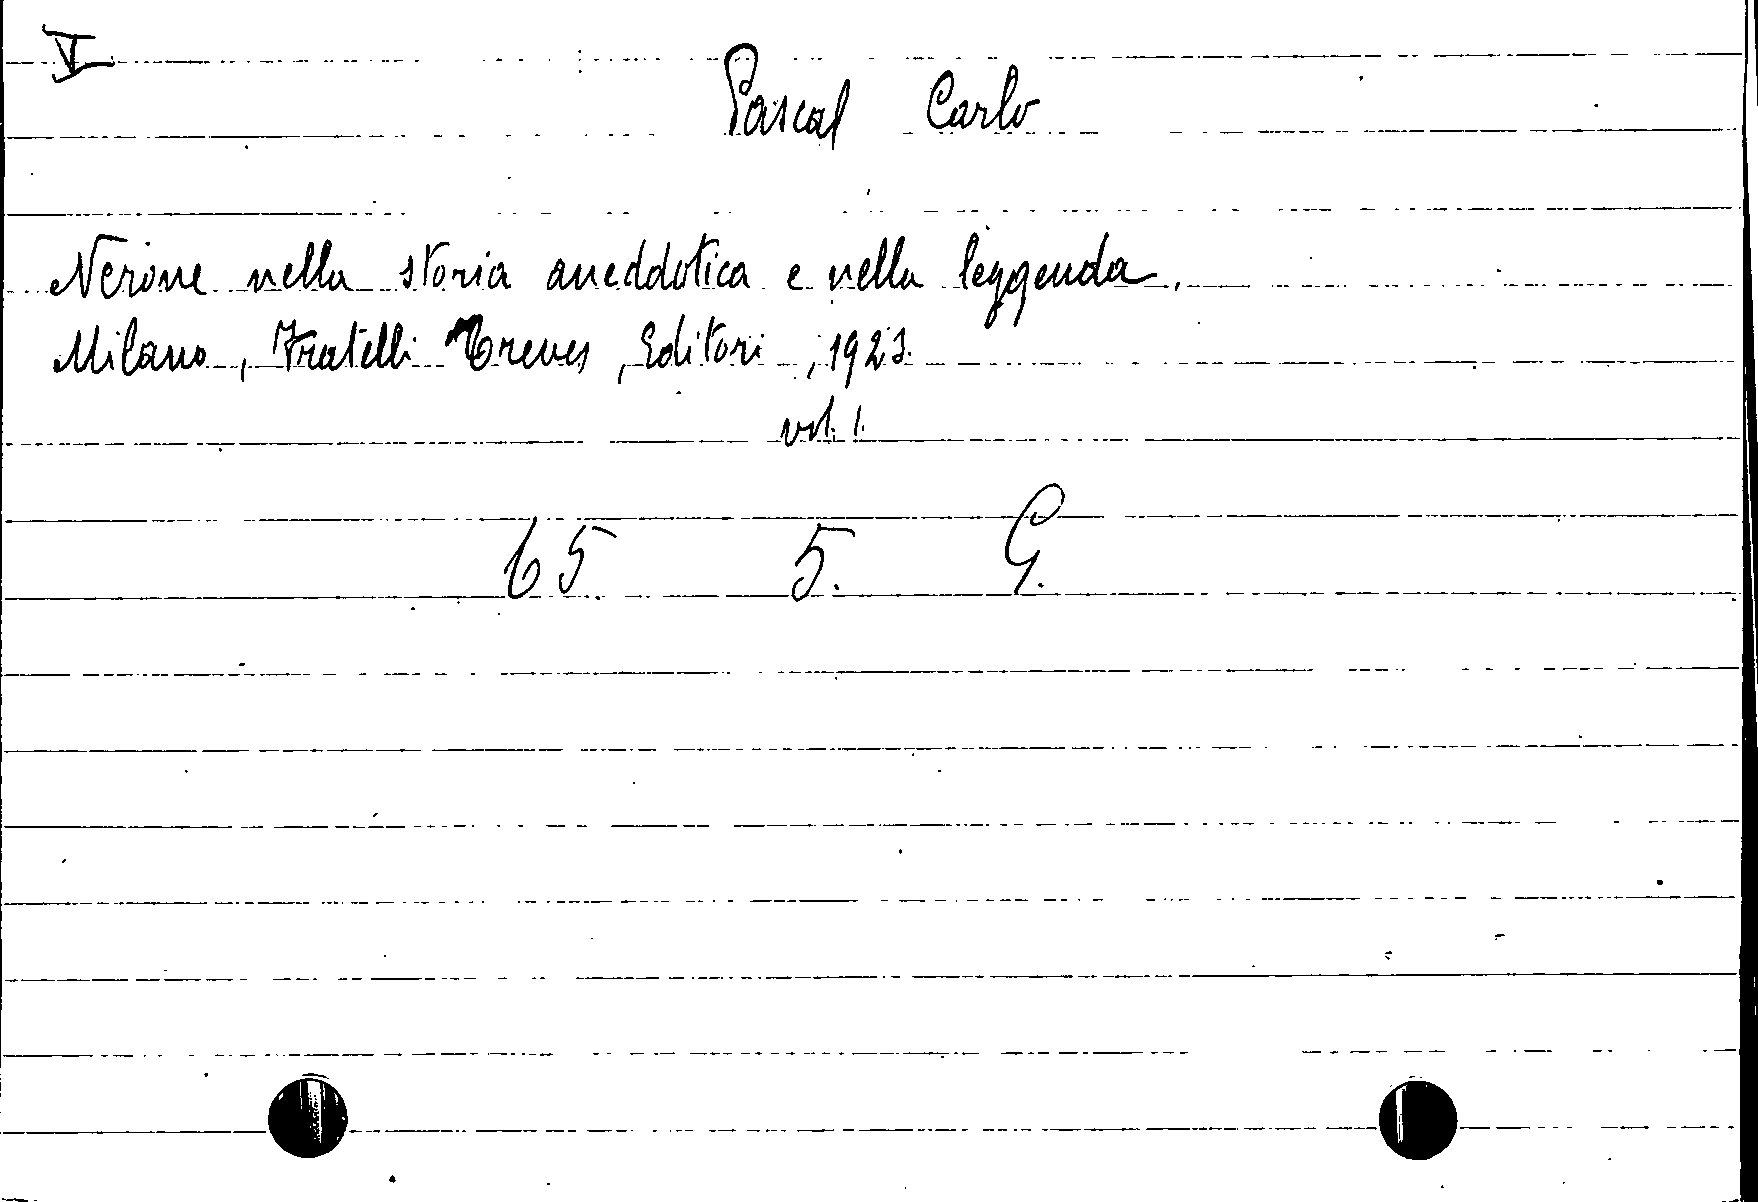 V
Pascal Carlo
Nerone nella storia aneddotica e nella leggenda.
Milano, Fratelli Treves, Editori, 1923.
vol. 1.
65. 5. G.